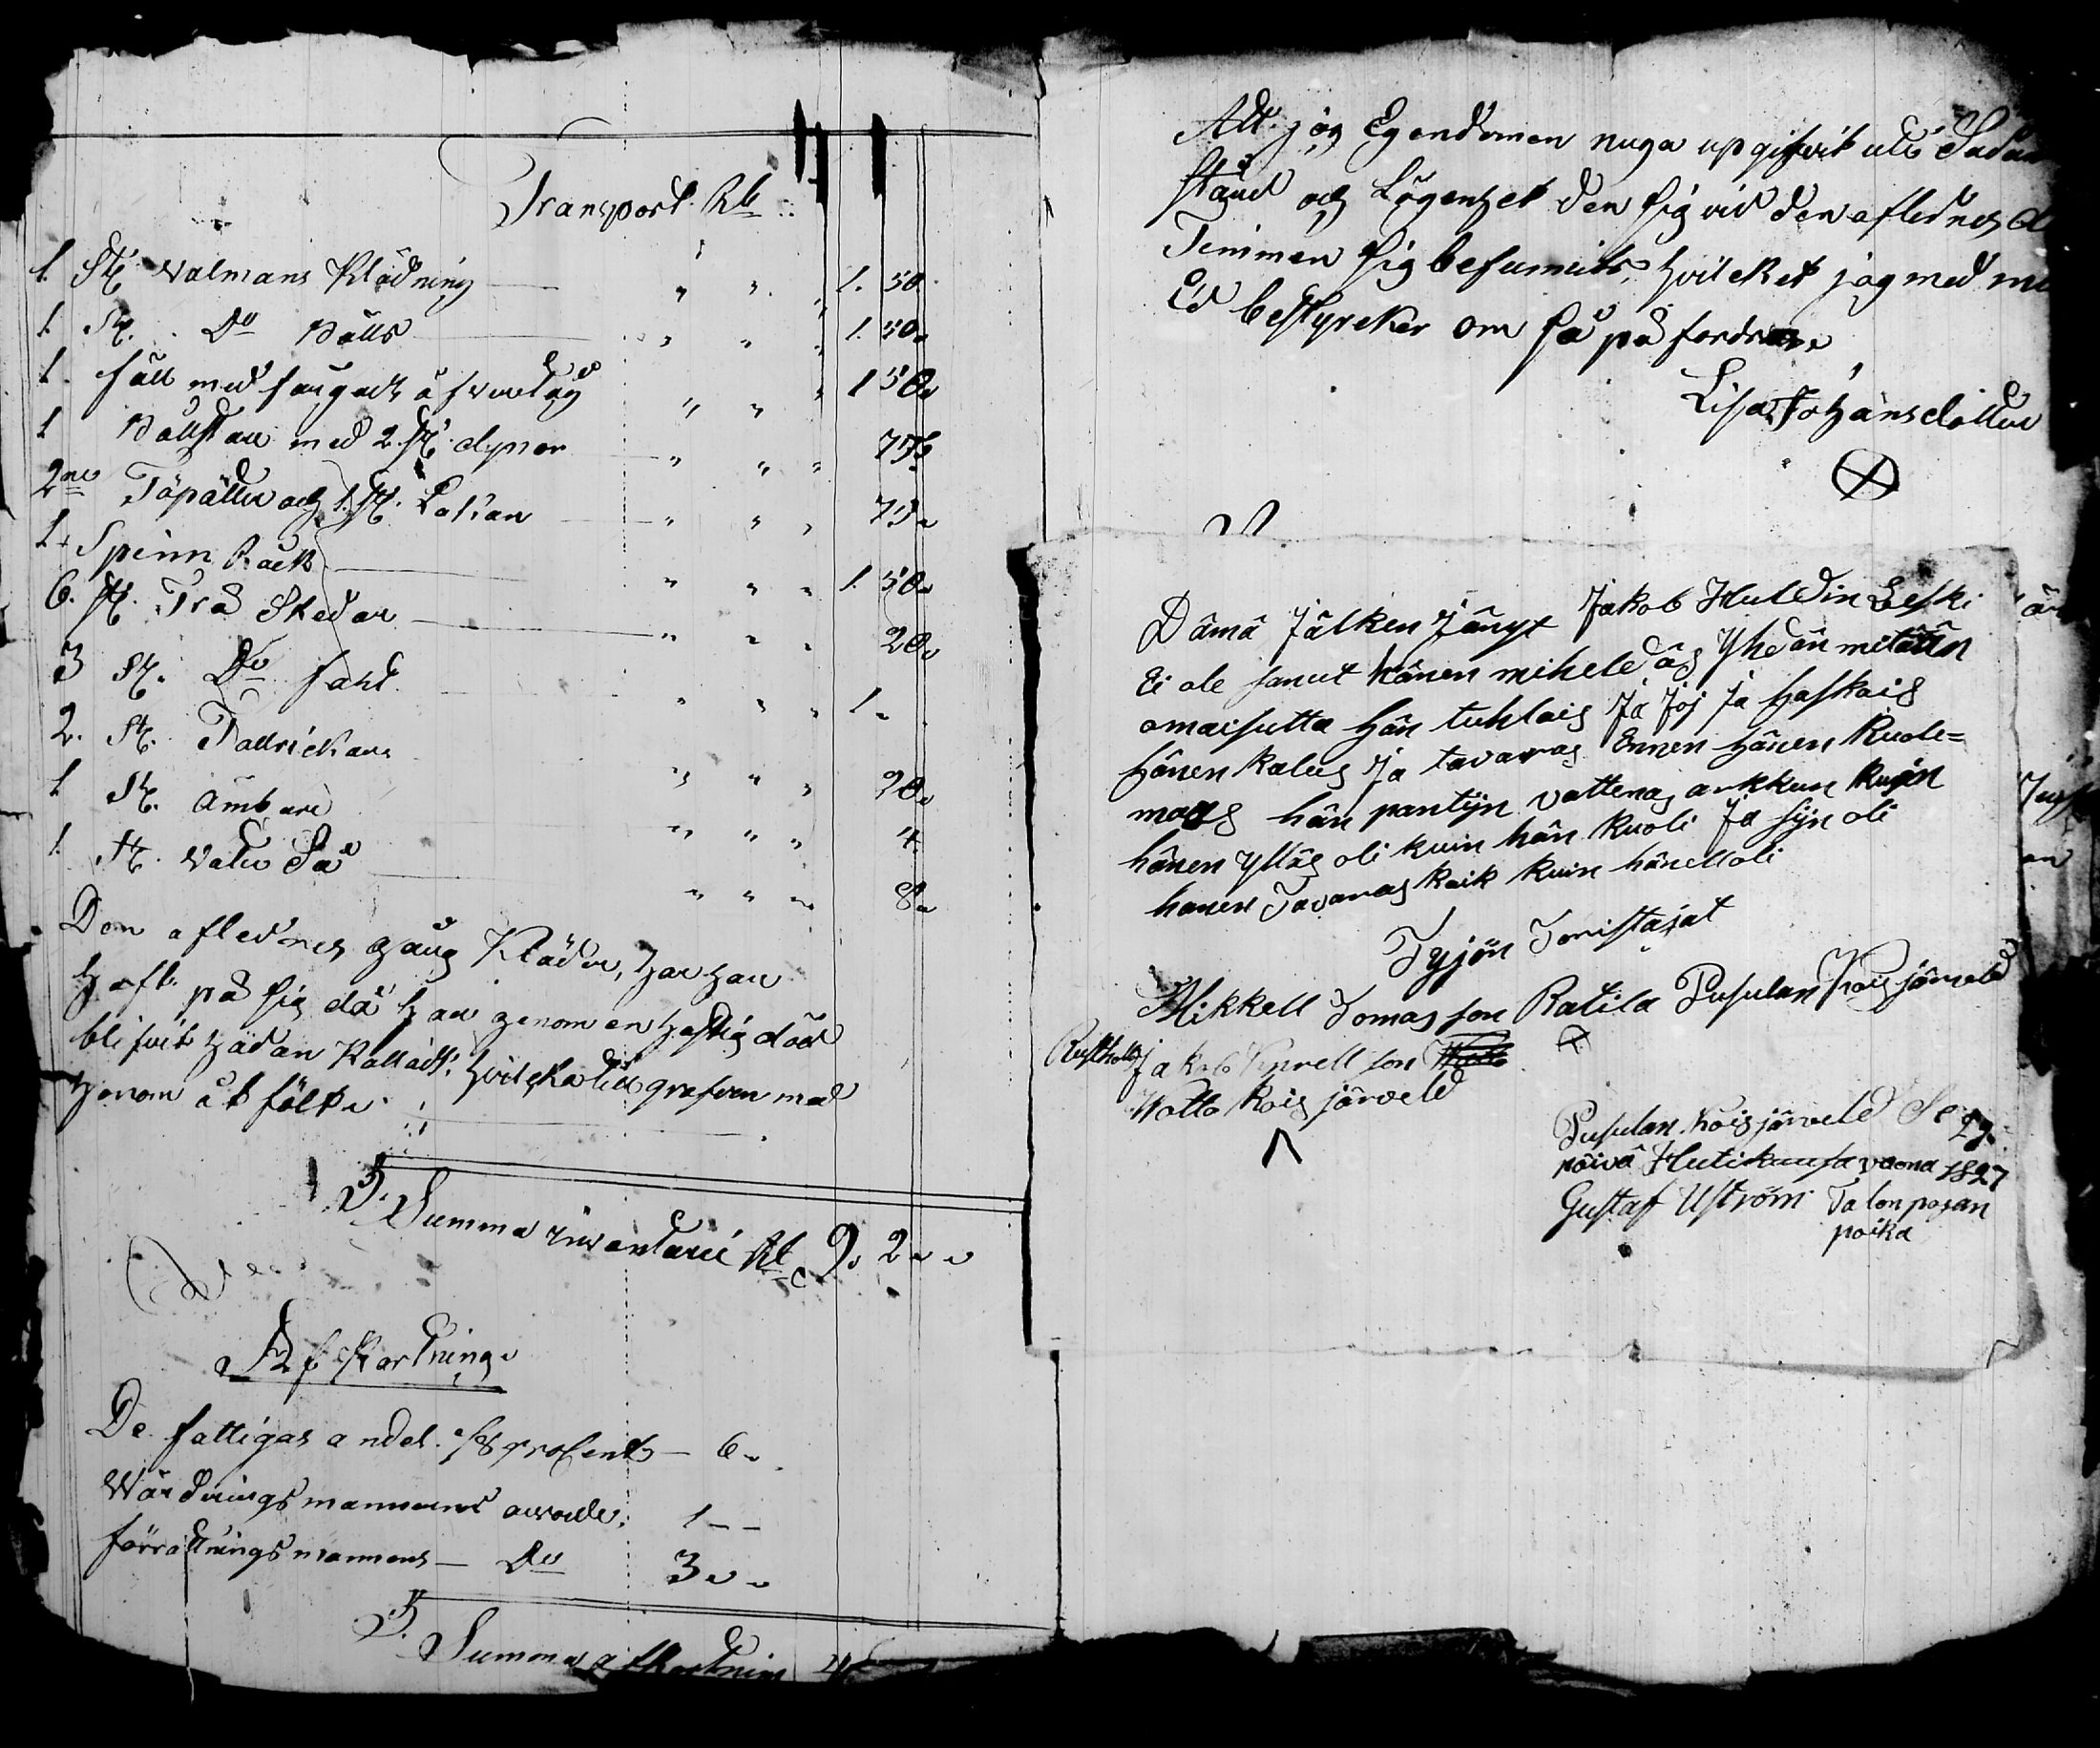 Transport Rb
1. St. Walmans Klädning " " " 1. 50.
1. St. Do " " " 1. 50.
1. fäll med " " " 1 50.
1 med 2 St. dynor " " " 75.
2ne och 1. St. Lakan " " " 75.
1. Spinn Råck " " " 1. 50.
6. St. Trä Skedar " " " 20.
3 St. Do fant " " " 1.
2. St. Tallrickar " " " 20.
1 St. ämbare " " " 4.
1. St. Vatu Så " " " 8.
Den aflednes gång Kläder, har han
haft på sig då han genom en haftig död
blifvit hädan Kallad; hvilcka till grafven med
honom åt fölkt.
Summa inventarie Rb 9. 2
Afkortning
De fattigas andel procent — 6.
Wärderingsmannerns arvode. 1 — —
förrättningsmannens — Do 3
Summa afkortning 4
Att jag Egendomen noga upgifvit uti Sådan
stånd och Lägenhet den sig vid den aflednes
Timmen sig befunnits, hvilcket jag med
Ed bestyrcker om så på fordras
Lisa Johansdotter
Dämä Jälken Jänyt Jakob Huldin Leski
Ei ole sanut hänen miheldäs Yhdän mitään
omaisutta hän tuhlais Ja Joj Ja haskais
hänen kalus Ja tavaras Ennen hänen Kuole=
mans hän pantijn vattenas arkkun kujn
hänen ylläs oli kuin hän kuoli Ja sijn oli
hanen Tavaras kaik kuin hänell oli
Tyjön Toristajat
Mikkell Tomas son Ratila Pusulan Koisjärveld
Rusthollj Jakob son
Watto Koisjärveld
Pusulan Koisjärveld Se 29.
päivä Hutikuusa vaona 1827
Gustaf Uström Talonpojan
poika